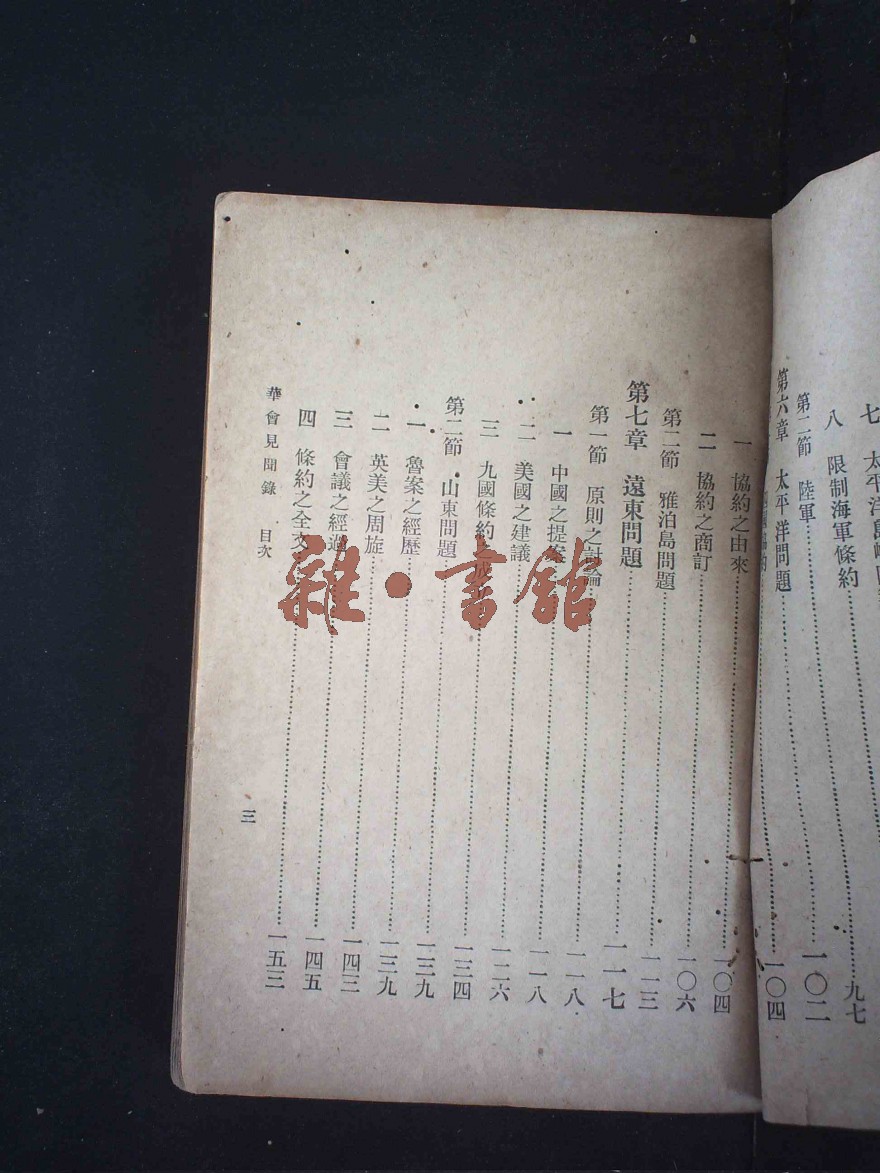 七 太平洋島
八 限制海軍條約 九七
第二節 陸軍 一〇二
第六章 太平洋問題 一〇四
一 協約之由來 一〇四
二 協約之商訂 一〇六
第二節 雅泊島問題 一一三
第七章 遠東問題 一一七
第一節 原則之討論 一一八
一 中國之提案 一一八
二 美國之建議 一二六
三 九國條約之成立 一三四
第二節 山東問題 一三九
一 魯案之經歷 一三九
二 英美之周旋 一四三
三 會議之經過 一四五
四 條約之全文 一五三
華會見聞錄 目次
三
雜·書館